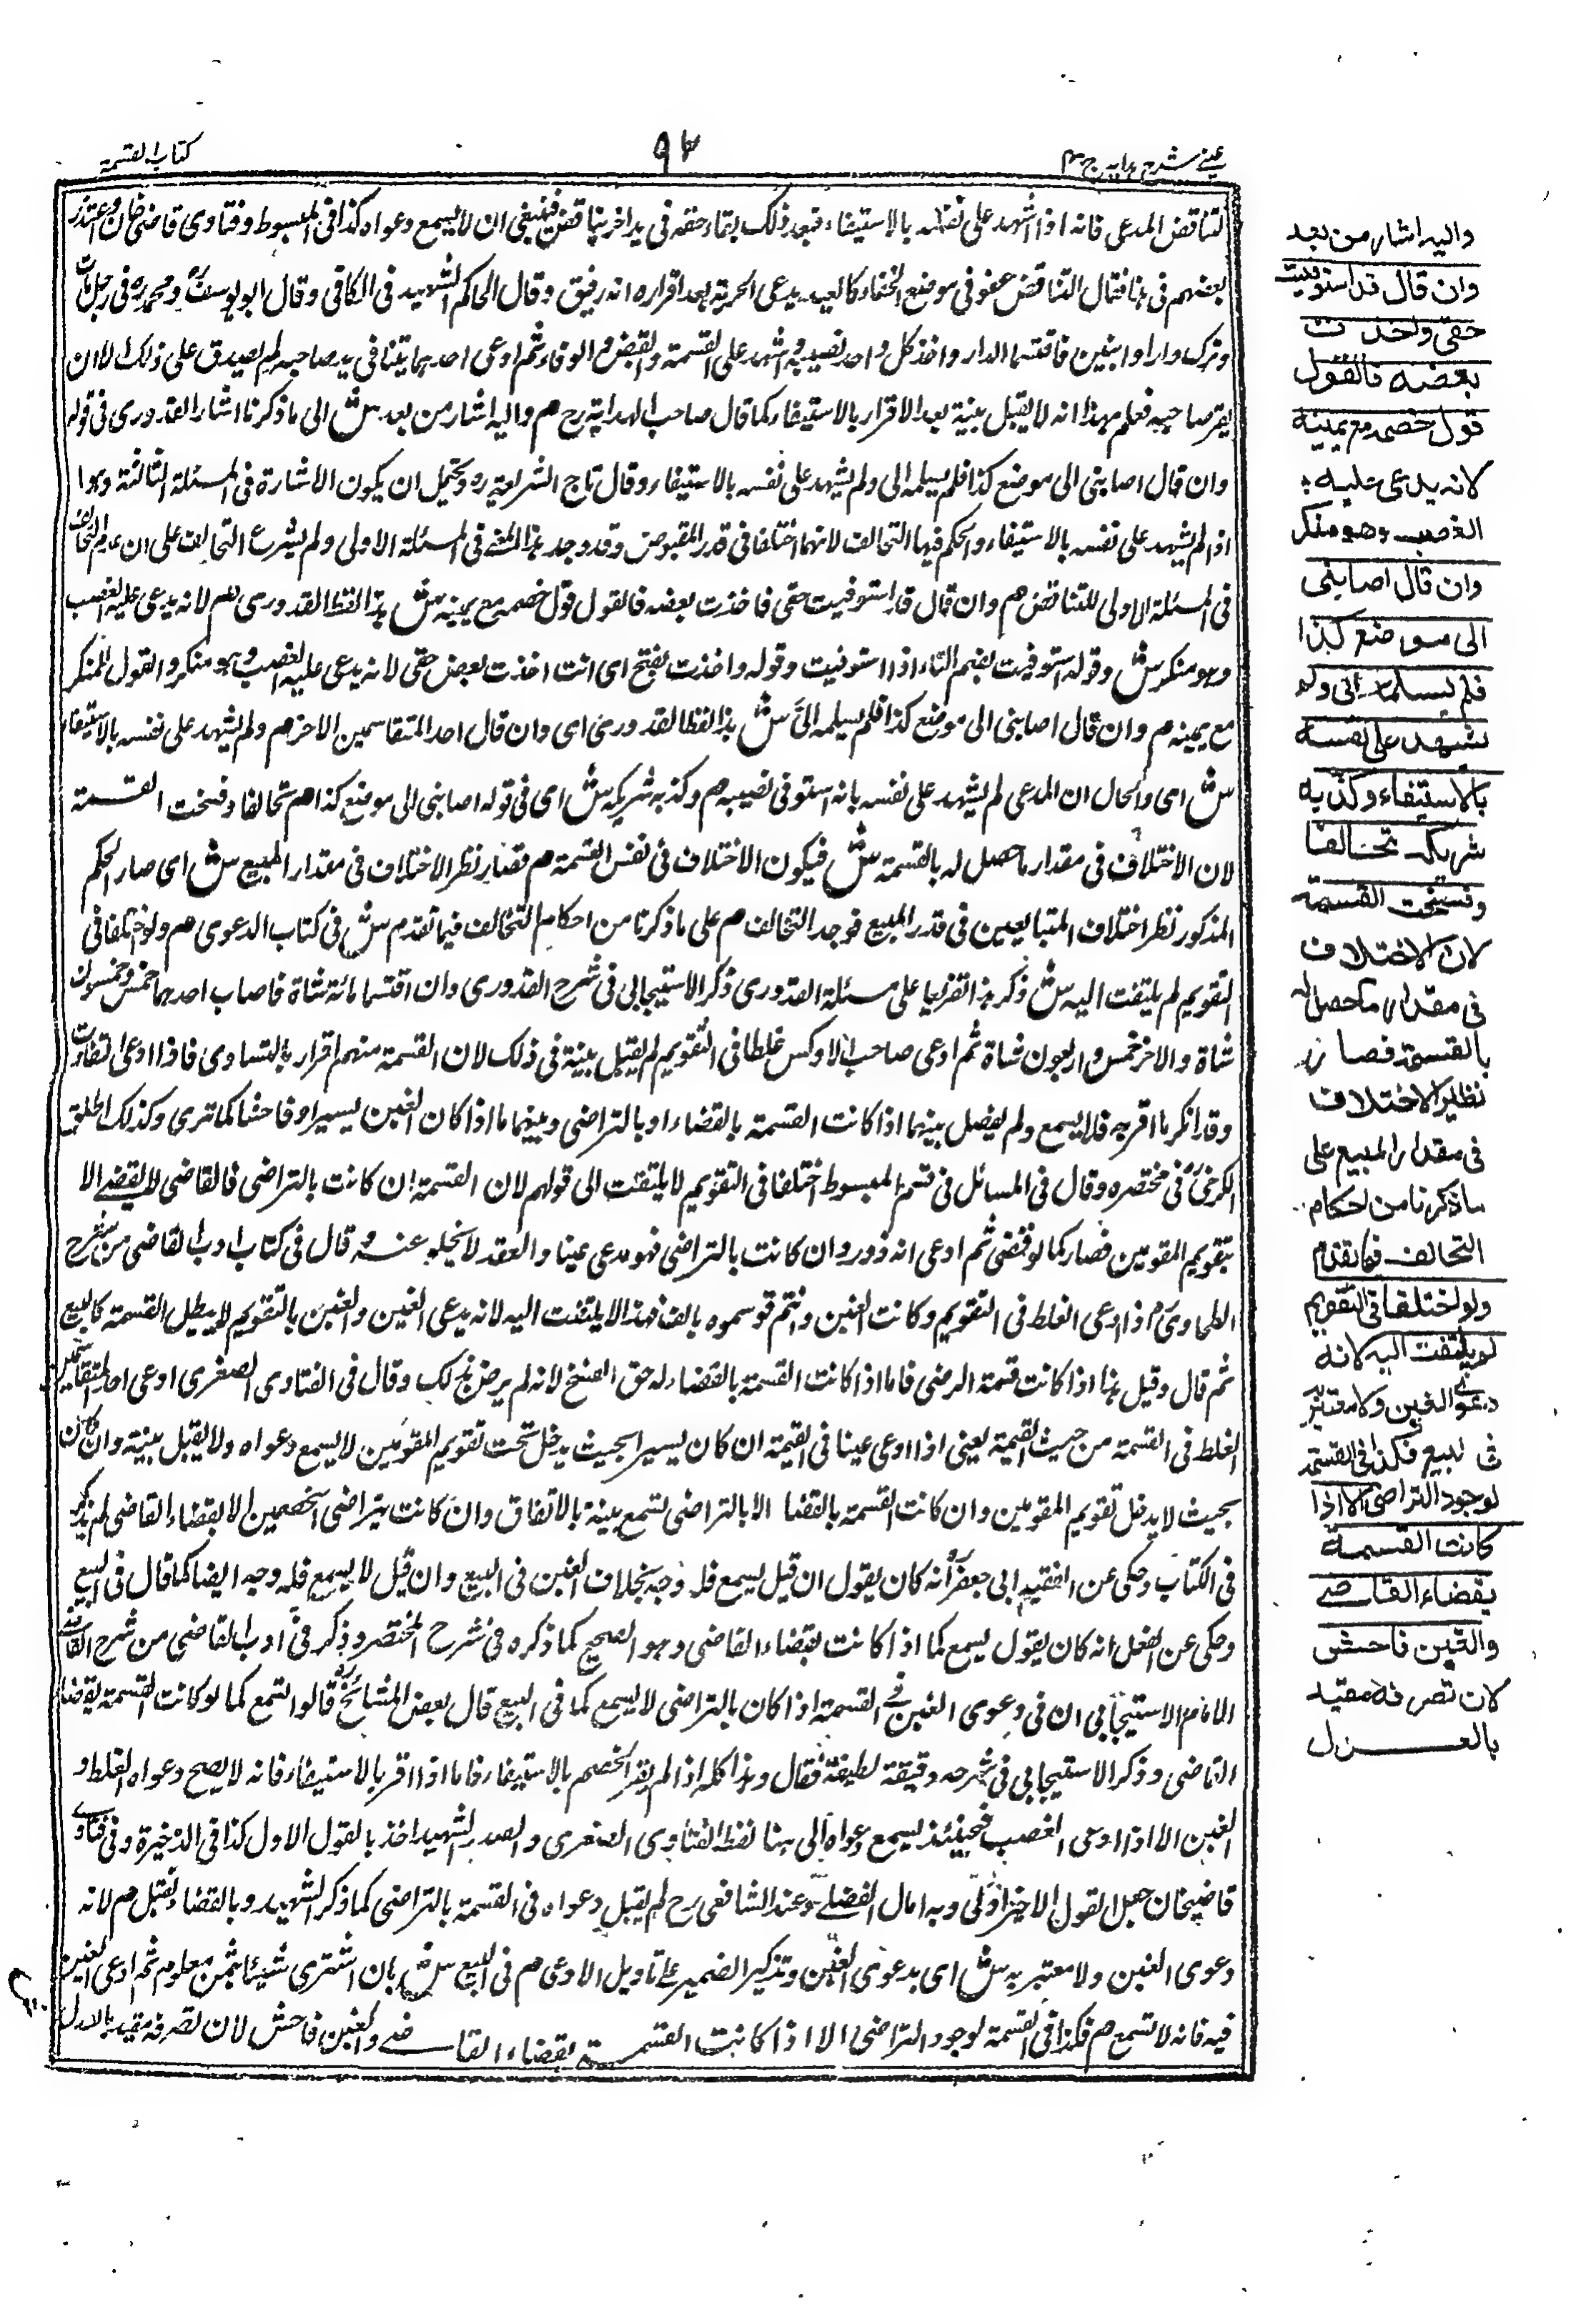 عینے شرح ہدایہ ج ۴
۹۴
کتاب القسمة
لتناقض المدعی فانه اذا اشهد علی نفسه بالاستیفاء فبعد ذلك بقاء حقه فی ید اخر یناقض فینبغی ان لا یسمع دعواه کذا فی المبسوط وفتاوی قاضی خان واعتذر
بعضهم فی هذا فقال التناقض عفو فی موضع الخفاء کالعبد یدعی الحریة بعد اقراره انه رقیق وقال الحاکم الشهید فی الکافی وقال ابو یوسف ومحمد ره فی رجل مات
وترک دارا وابنین فاقتسما الدار واخذ کل واحد نصیبه واشهد علی القسمة والقبض والوفاء ثم ادعی احدهما بیتا فی ید صاحبه لم یصدق علی ذلک الا ان
یقر صاحبه فعلم بهذا انه لا یقبل بینة بعد الاقرار بالاستیفاء کما قال صاحب الهدایة رح هم والیه اشار من بعد ش الی ما ذکرنا اشار القدوری فی قوله
وان قال اصابنی الی موضع کذا فلم یسلمه الی ولم یشهد علی نفسه بالاستیفاء وقال تاج الشریعة ره ویحتمل ان یکون الاشارة فی المسئلة الثالثة وهوا
اذا لم یشهد علی نفسه بالاستیفاء والحکم فیها التحالف لانهما اختلفا فی قدر المقبوض وقد وجد هذا المعنی فی المسئلة الاولی ولم یشرع التحالف علی ان عدم التحالف
فی المسئلة الاولی للتناقض هم وان قال قد استوفیت حقی فاخذت بعضه فالقول قول خصمه مع یمینه ش هذا لفظ القدوری هم لانه یدعی علیه الغصب
وهو منکر ش وقوله استوفیت بضم التاء اذا استوفیت وقوله واخذت بفتح ای انت اخذت بعض حقی لانه یدعی علیه الغصب وهو منکر والقول للمنکر
مع یمینه هم وان قال اصابنی الی موضع کذا فلم یسلمه الیَّ ش هذا لفظ القدوری ای وان قال احد المتقاسمین الاخر هم ولم یشهد علی نفسه بالاستیفاء
ش ای والحال ان المدعی لم یشهد علی نفسه بانه استوفی نصیبه هم وکذبه شریکه ش ای فی قوله اصابنی الی موضع کذا هم تحالفا وفسخت القسمة
لان الاختلاف فی مقدار ما حصل له بالقسمة ش فیکون الاختلاف فی نفس القسمة هم فصار نظر الاختلاف فی مقدار المبیع ش ای صار الحکم
المذکور نظر اختلاف المتبایعین فی قدر المبیع فوجد التحالف هم علی ما ذکرنا من احکام التحالف فیما تقدم ش فی کتاب الدعوی هم ولو اختلفا فی
التقویم لم یلتفت الیه ش ذکر هذا تفریعا علی مسئلة القدوری ذکر الاستیجابی فی شرح القدوری وان اقتسما مائة شاة فاصاب احدهما خمس وخمسون
شاة والاخر خمس واربعون شاة ثم ادعی صاحب الاوکس غلطا فی التقویم لم یقبل بینة فی ذلک لان القسمة منهم اقرار بالتساوی فاذا ادعی التفاوت
وقد انکر ما اقر به فلا یسمع ولم یفصل بینهما اذا کانت القسمة بالقضاء او بالتراضی وبینهما ما اذا کان الغبن یسیرا وفاحشا کما تری وکذلک اطلق
الکرخیؒ فی مختصره وقال فی المسائل فی قسم المبسوط اختلفا فی التقویم لا یلتفت الی قولهم لان القسمة ان کانت بالتراضی فالقاضی لا یقضی الا
بتقویم المقومین فصار کما لو قضی ثم ادعی انه زور وان کانت بالتراضی فهو مدعی عینا والعقد لا یخلو عنه وقال فی کتاب ادب القاضی من شرح
الطحاویؒ اذا ادعی الغلط فی التقویم وکانت الغبن وانتم قوسموه بالف فهذا لا یلتفت الیه لانه یدعی الغبن والغبن بالتقویم لا یبطل القسمة کالبیع
ثم قال وقیل هذا اذا کانت قسمة الرضی فاما اذا کانت القسمة بالقضاء له حق الفسخ لانه لم یرض بذلک وقال فی الفتاوی الصغری ادعی احد المتقاسمین
الغلط فی القسمة من حیث القیمة یعنی اذا ادعی عینا فی القیمة ان کان یسیرا بحیث یدخل تحت تقویم المقومین لا یسمع دعواه ولا یقبل بینته وان کان
بحیث لا یدخل تقویم المقومین وان کانت القسمة بالقضا الا بالتراضی تسمع بینة بالاتفاق وان کانت بتراضی الخصمین لا بقضاء القاضی لم یذکر
فی الکتاب وحکی عن الفقیه ابی جعفرؒ انه کان یقول ان قیل یسمع فله وجه بخلاف الغبن فی البیع وان قیل لا یسمع فله وجه ایضا کما قال فی البیع
وحکی عن الفضل انه کان یقول یسمع کما اذا کانت بقضاء القاضی وهو الصحیح کما ذکره فی شرح المختصر وذکر فی ادب القاضی من شرح القاضی
الامام الاستیجابی ان فی دعوی الغبن فی القسمة اذا کان بالتراضی لا یسمع کما فی البیع قال بعض المشایخ قالوا تسمع کما لو کانت القسمة بقضاء
القاضی وذکر الاستیجابی فی شرحه دقیقة لطیفة فقال وهذا کله اذا لم یقر الخصم بالاستیفاء فاما اذا اقر بالاستیفاء فانه لا یصح دعواه الغلط و
الغبن الا اذا ادعی الغصب فحینئذ یسمع دعواه الی هنا لفظ الفتاوی الصغری والصدر الشهید اخذ بالقول الاول کذا فی الذخیرة وفی فتاوی
قاضیخان جعل القول الاخیر اولی وبه امال الفضلے وعند الشافعی رح لم یقبل دعواه فی القسمة بالتراضی کما ذکر الشهید وبالقضاء تقبل هم لانه
دعوی الغبن ولا معتبر به ش ای بدعوی الغبن وتذکیر الضمیر علے تاویل الادعی هم فی البیع ش بان اشتری شیئا بثمن معلوم ثم ادعی الغبن
فیه فانه لا تسمع هم فکذا فی القسمة لوجود التراضی الا اذا کانت القسمة بقضاء القاضے والغبن فاحش لان تصرفه مقید بالعدل
والیه اشار من بعد
وان قال قد استوفیت
حقی واخذت
بعضه فالقول
قول خصمه مع یمینه
لانه یدعی علیه
الغصب وهو منکر
وان قال اصابنی
الی موضع کذا
فلم یسلمه الی ولم
یشهد علی نفسه
بالاستیفاء وکذبه
شریکه تحالفا
وفسخت القسمة
لان الاختلاف
فی مقدار ما حصل له
بالقسمة فصار
نظیر الاختلاف
فی مقدار المبیع علی
ما ذکرنا من احکام
التحالف فیما تقدم
ولو اختلفا فی التقویم
لم یلتفت الیه لانه
دعوی الغبن ولا معتبر به
فی البیع فکذا فی القسمة
لوجود التراضی الا اذا
کانت القسمة
بقضاء القاضے
والغبن فاحش
لان تصرفه مقید
بالعدل